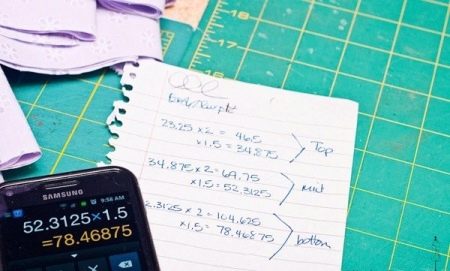 18
17
16
23.25 x 2 = 46.5
x1.5 = 34.875
Top
34.875 x 2 = 69.75
x1.5 = 52.3125
mid
2.3125 x 2 = 104.625
x1.5 = 78.46875
bottom
SAMSUNG
9:56 AM
52.3125×1.5
=78.46875